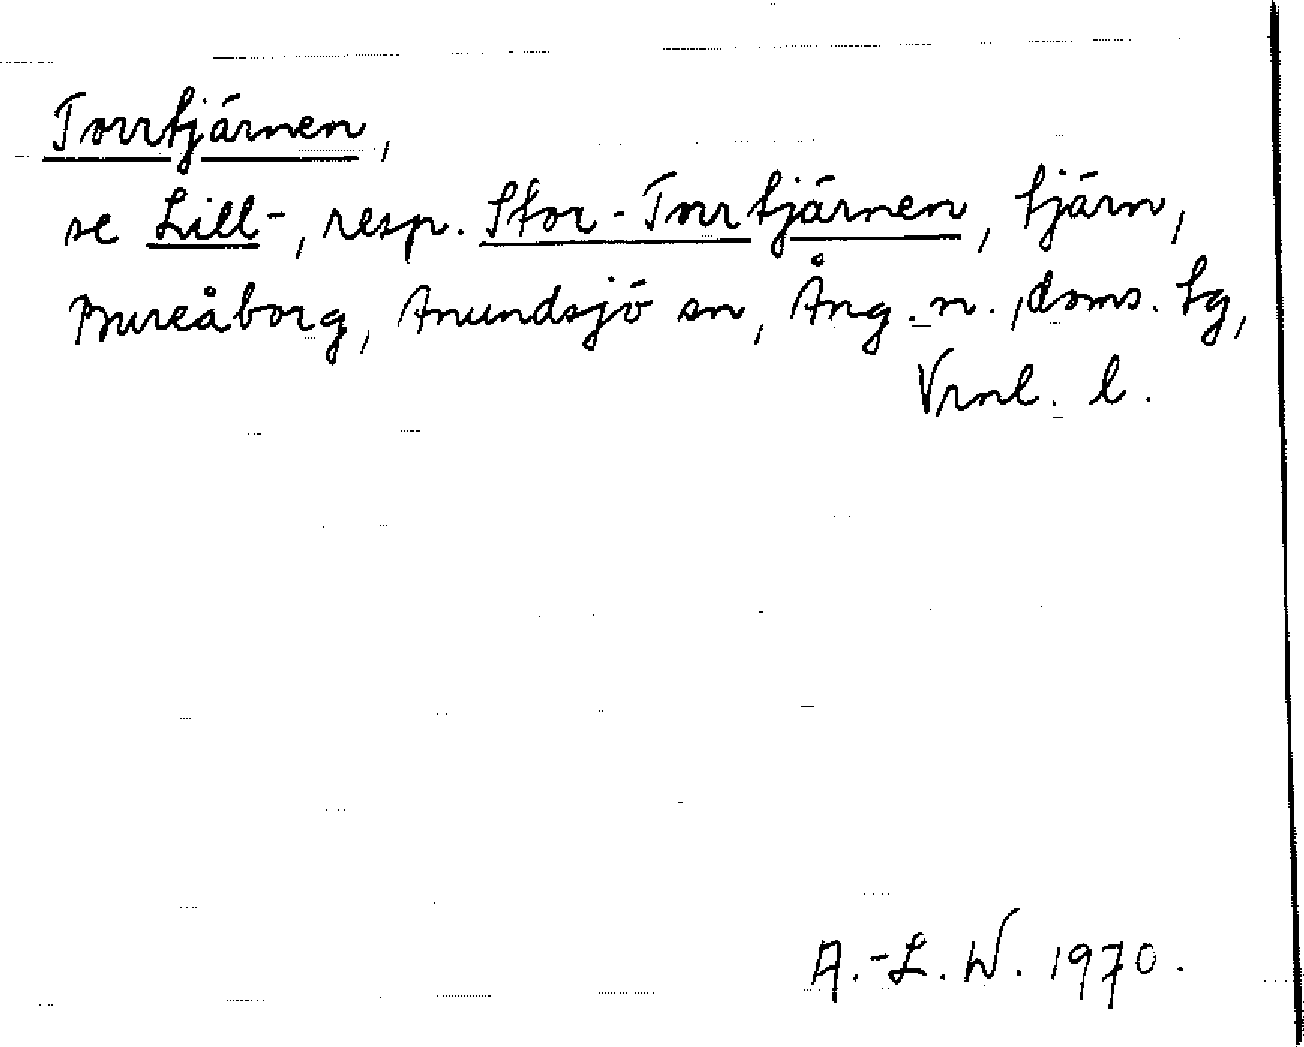 Torrtjärnen,
se Lill-, resp. Stor-Torrtjärnen, tjärn,
Bureåborg, Anundsjö sn, Ång. n., doms. tg,
Vrnl. l.
A.-L. W. 1970.